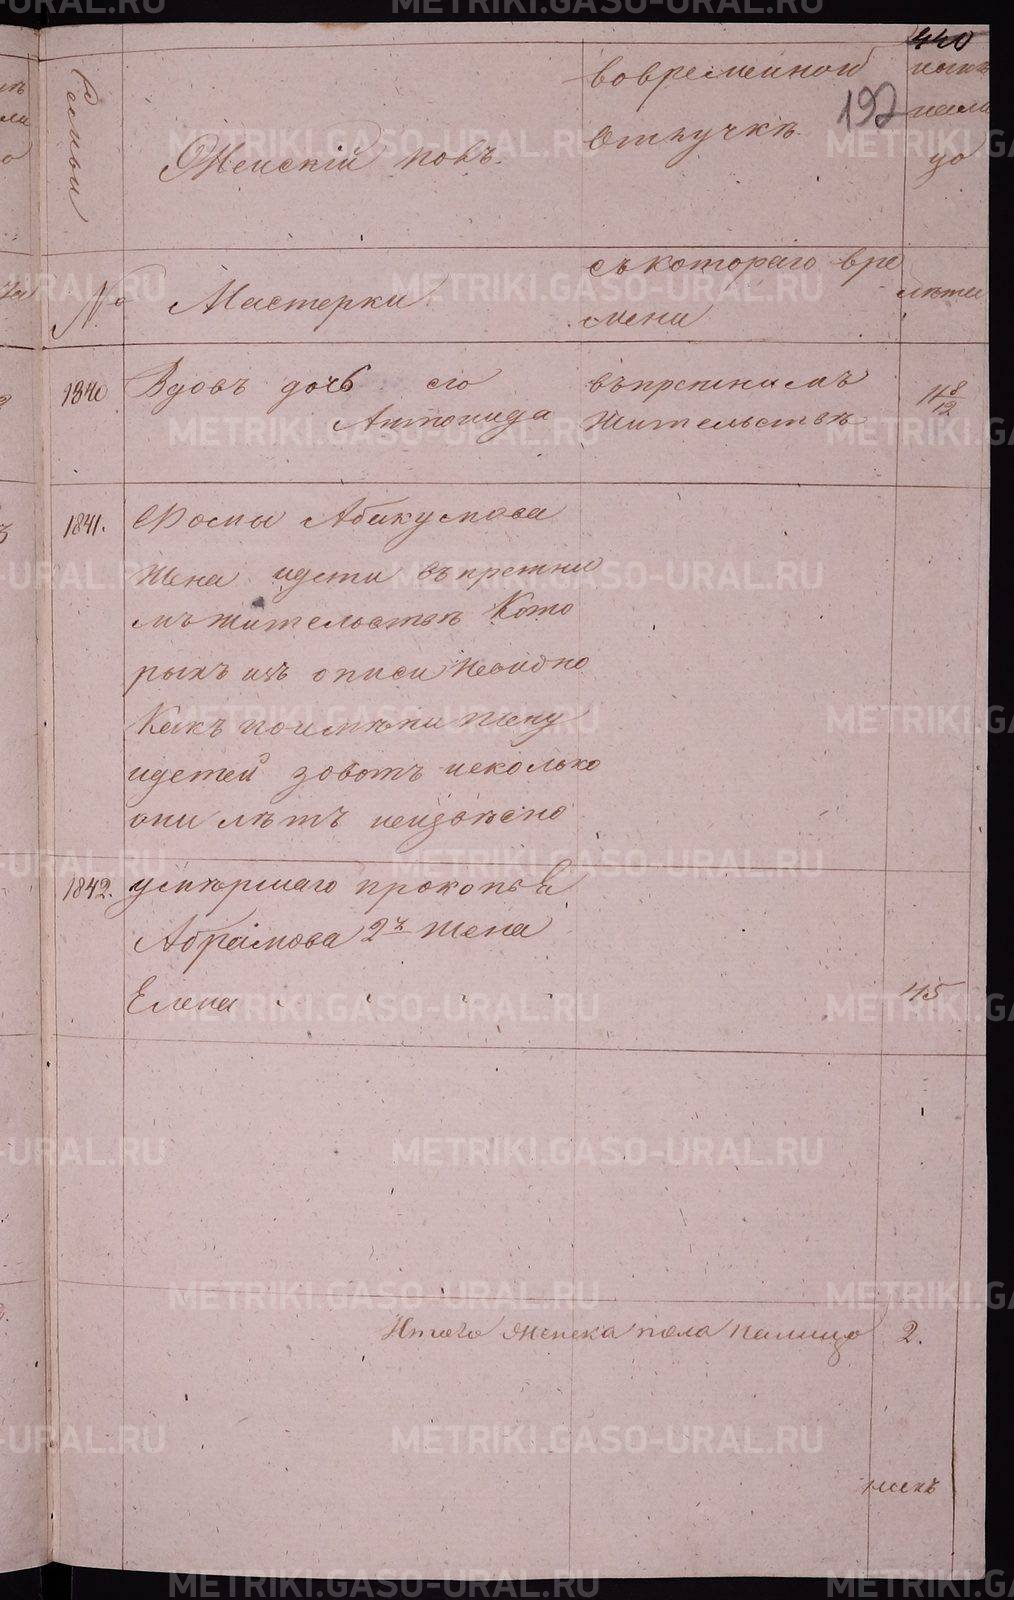 440
192
Семьи
Женскій полъ.
вовременной
отлучкѣ.
нынѣ
нали
цо
№
Мастерки
съкотораго вре
мени
лѣта
1840
Вдовъ дочь его
Антонида
въпрежнимъ
жительствѣ
11 8/12
1841.
Фомы Абакумова
жена идети въпрежни
мъ жительствѣ Кото
рыхъ изъ описи невидно
Какъ поимѣни жену
идетей зовотъ исколько
они лѣтъ неизвѣсно
1842.
умѣршаго прокопья
Абрамова 2ъ жена
Елена
45
Итого женска пола налицо 2.
METRIKI.GASO-URAL.RU